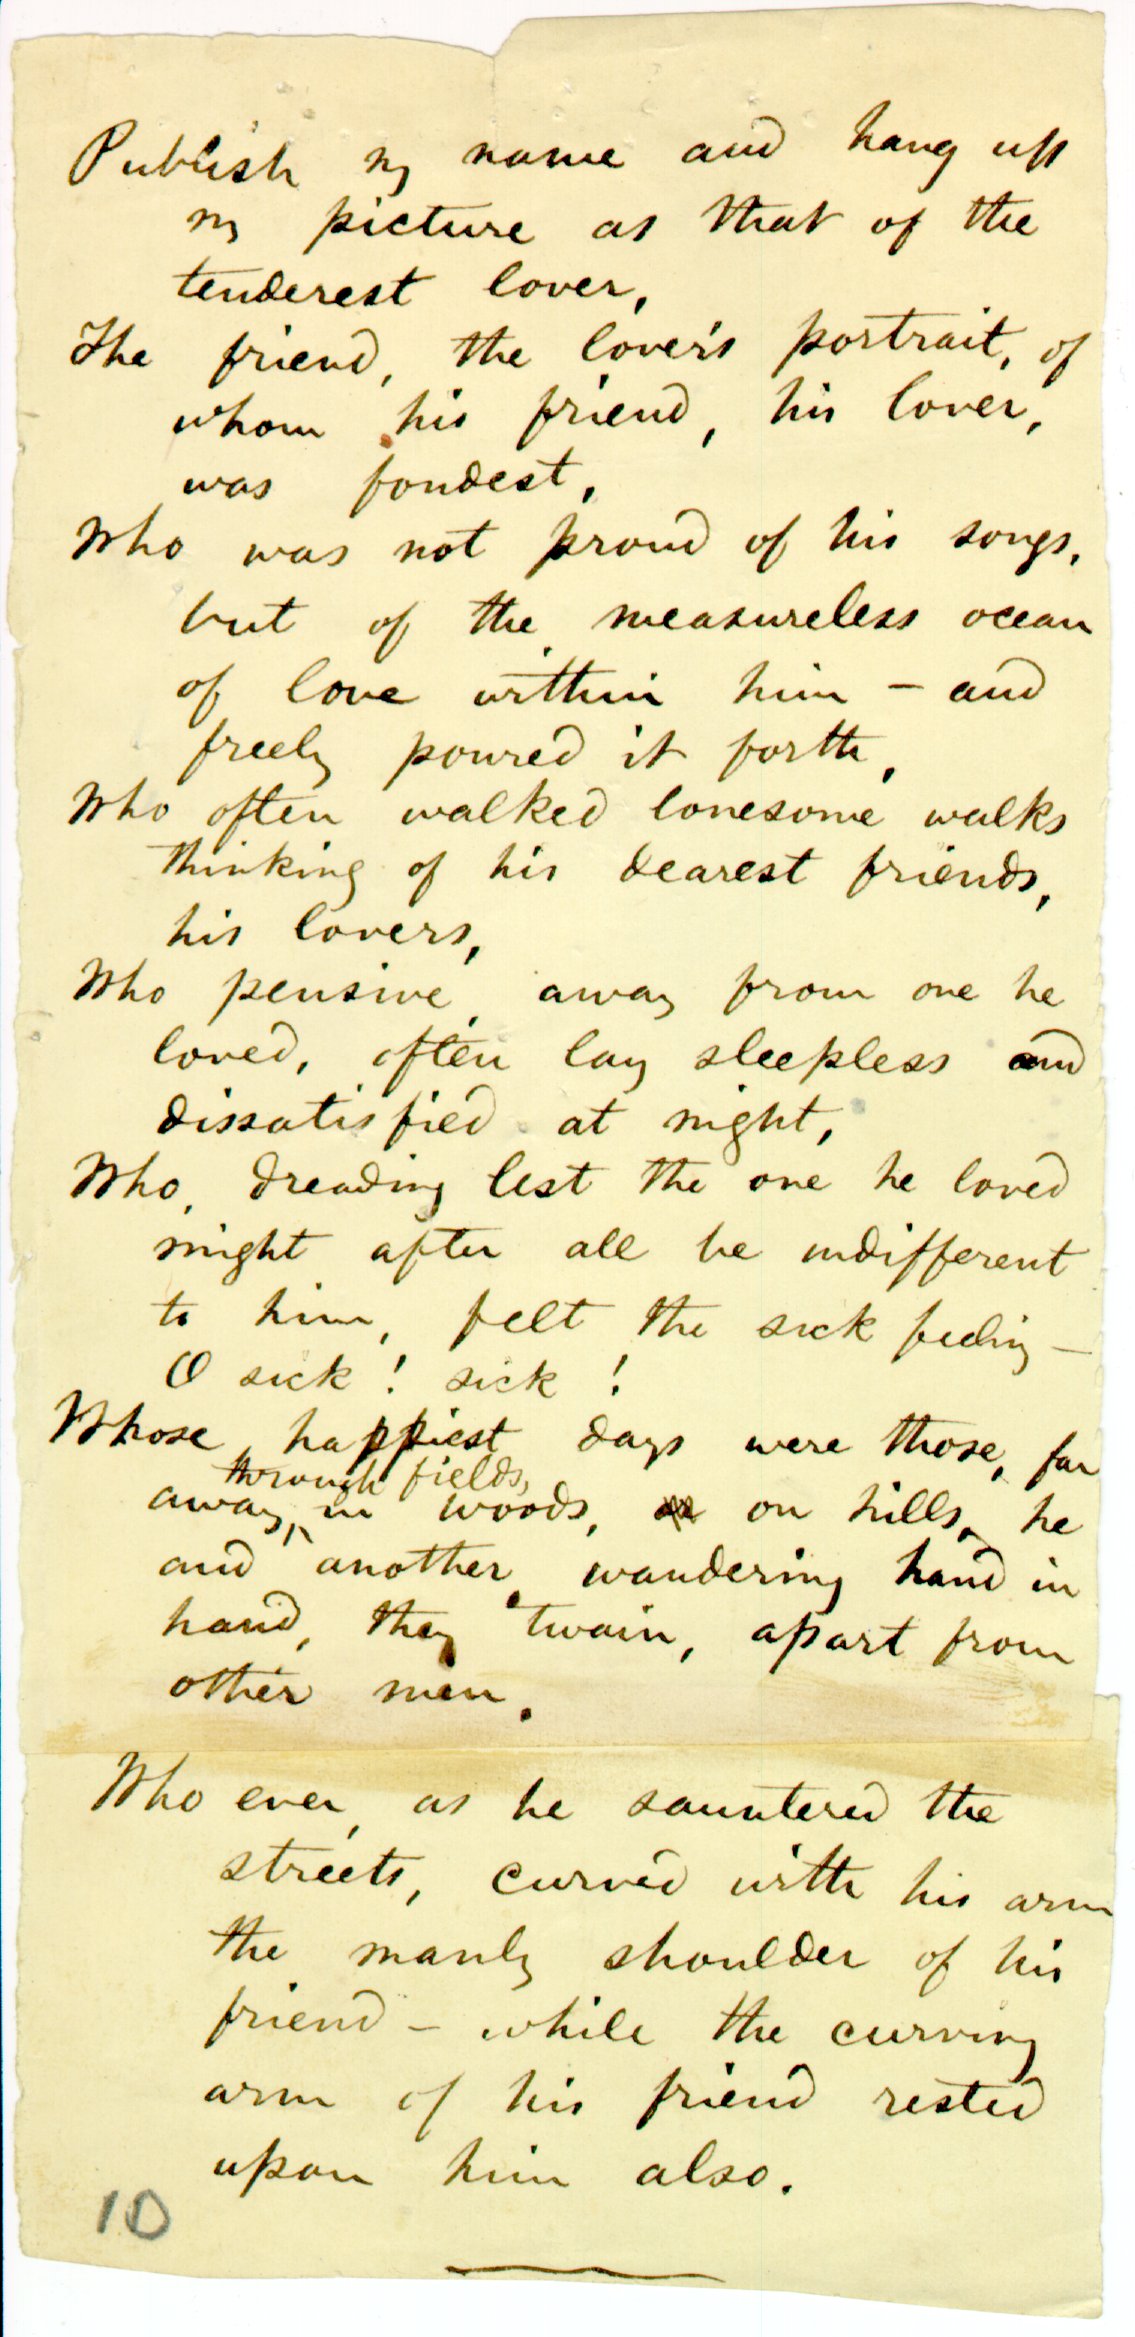 Publish my name and hang up
my picture as that of the
tenderest lover,
The friend, the lover's portrait, of
whom his friend, his lover,
was fondest,
Who was not proud of his songs,
but of the measureless ocean
of love within him — and
freely poured it forth,
Who often walked lonesome walks
thinking of his dearest friends,
his lovers,
Who pensive, away from one he
loved, often lay sleepless and
dissatisfied at night,
Who, dreading lest the one he loved
might after all be indifferent
to him, felt the sick feeling —
O sick! sick!
Whose happiest days were those, far
through fields,
away, in woods, on hills, he
and another, wandering hand in
hand, they twain, apart from
other men.
Who ever, as he sauntered the
streets, curved with his arm
the manly shoulder of his
friend — while the curving
arm of his friend rested
upon him also.
10